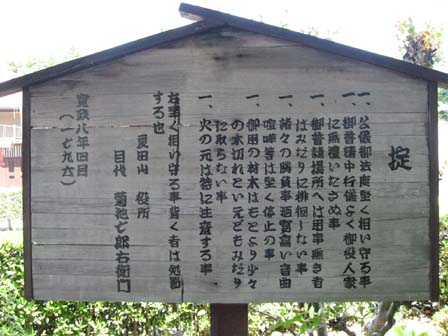 掟
一、公儀御法度堅く相い守る事
一、御普請中行儀よく御役人衆
に無禮いたさぬ事
一、御普請場所へは用事無き者
はみだりに徘徊しない事
一、諸々の勝負事酒宴高い音曲
喧嘩等は堅く停止の事
一、御用の材木はもとより少々
の木切れといえどもみだり
に取らない事
一、火の元は特に注意する事
右堅く相い守る事背く者は処罰
する也
寛政八年四月
(一七九六)
戻田山 役所
目代 菊池七郎右衛門